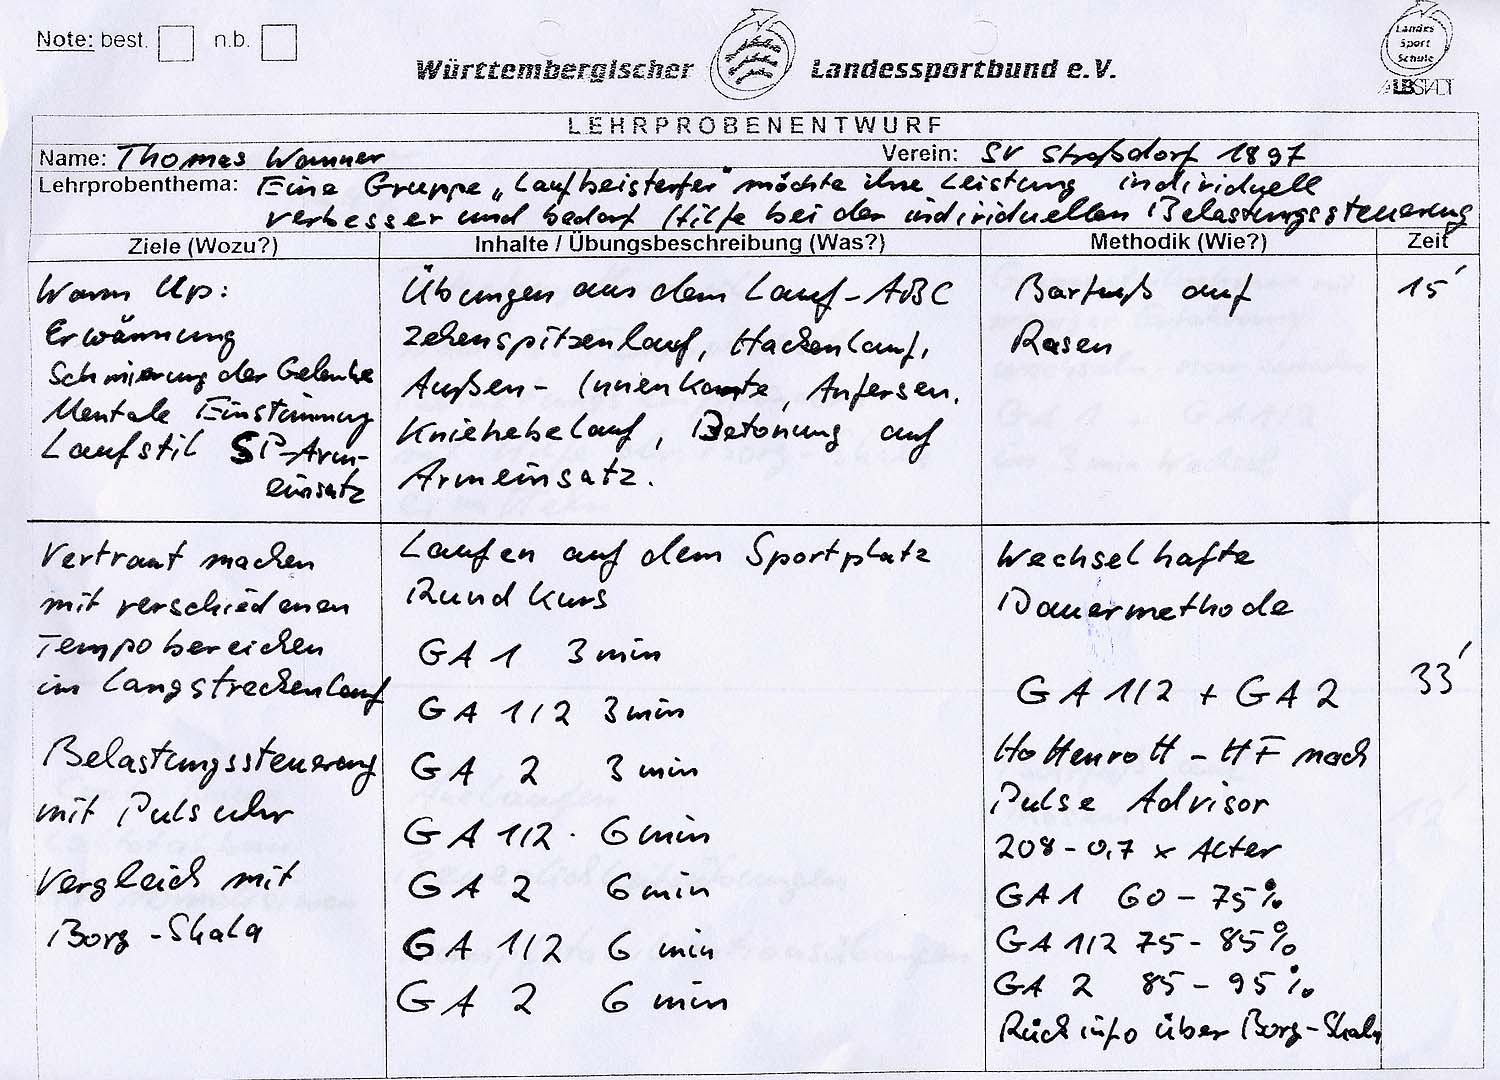 Note: best. n.b.
Württembergischer Landessportbund e.V.
Landes
Sport
Schule
ALBSTADT
LEHRPROBENENTWURF
Name: Thomas Wanner Verein: SV Straßdorf 1897
Lehrprobenthema: Eine Gruppe „Laufbeisterter" möchte ihre Leistung individuell
verbesser und bedarf Hilfe bei der individuellen Belastungssteuerung
Ziele (Wozu?) Inhalte / Übungsbeschreibung (Was?) Methodik (Wie?) Zeit
Warm Up:
Erwärmung
Schmierung der Gelenke
Mentale Einstimmung
Laufstil SP-Arm-
einsatz
Übungen aus dem Lauf-ABC
Zehenspitzenlauf, Hackenlauf,
Außen- Innenkante, Anfersen,
Kniehebelauf, Betonung auf
Armeinsatz.
Barfuß auf
Rasen
15'
Vertraut machen
mit verschiedenen
Tempobereichen
im Langstreckenlauf
Belastungssteuerung
mit Pulsuhr
Vergleich mit
Borg-Skala
Laufen auf dem Sportplatz
Rundkurs
GA 1 3 min
GA 1/2 3 min
GA 2 3 min
GA 1/2 6 min
GA 2 6 min
GA 1/2 6 min
GA 2 6 min
Wechselhafte
Dauermethode
GA 1/2 + GA 2
Hottenrott - HF nach
Pulse Advisor
208-0,7 x Alter
GA 1 60 - 75%
GA 1/2 75 - 85%
GA 2 85 - 95%
Rückinfo über Borg-Skala
33'